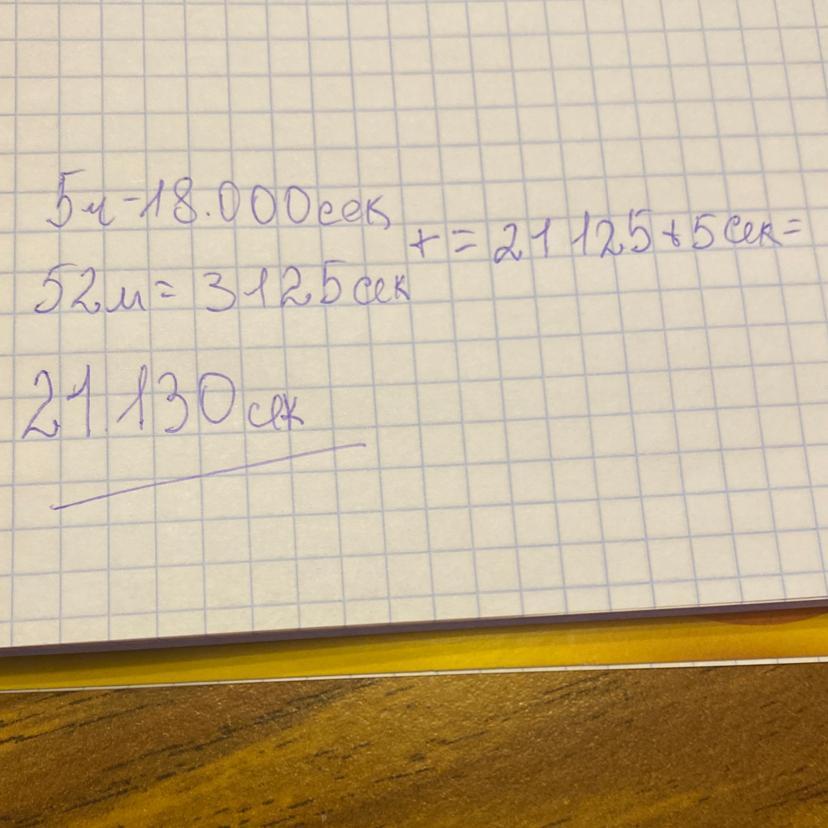 5ч-18.000сек
+ = 21 125+5сек=
52м= 3125сек
21.130сек